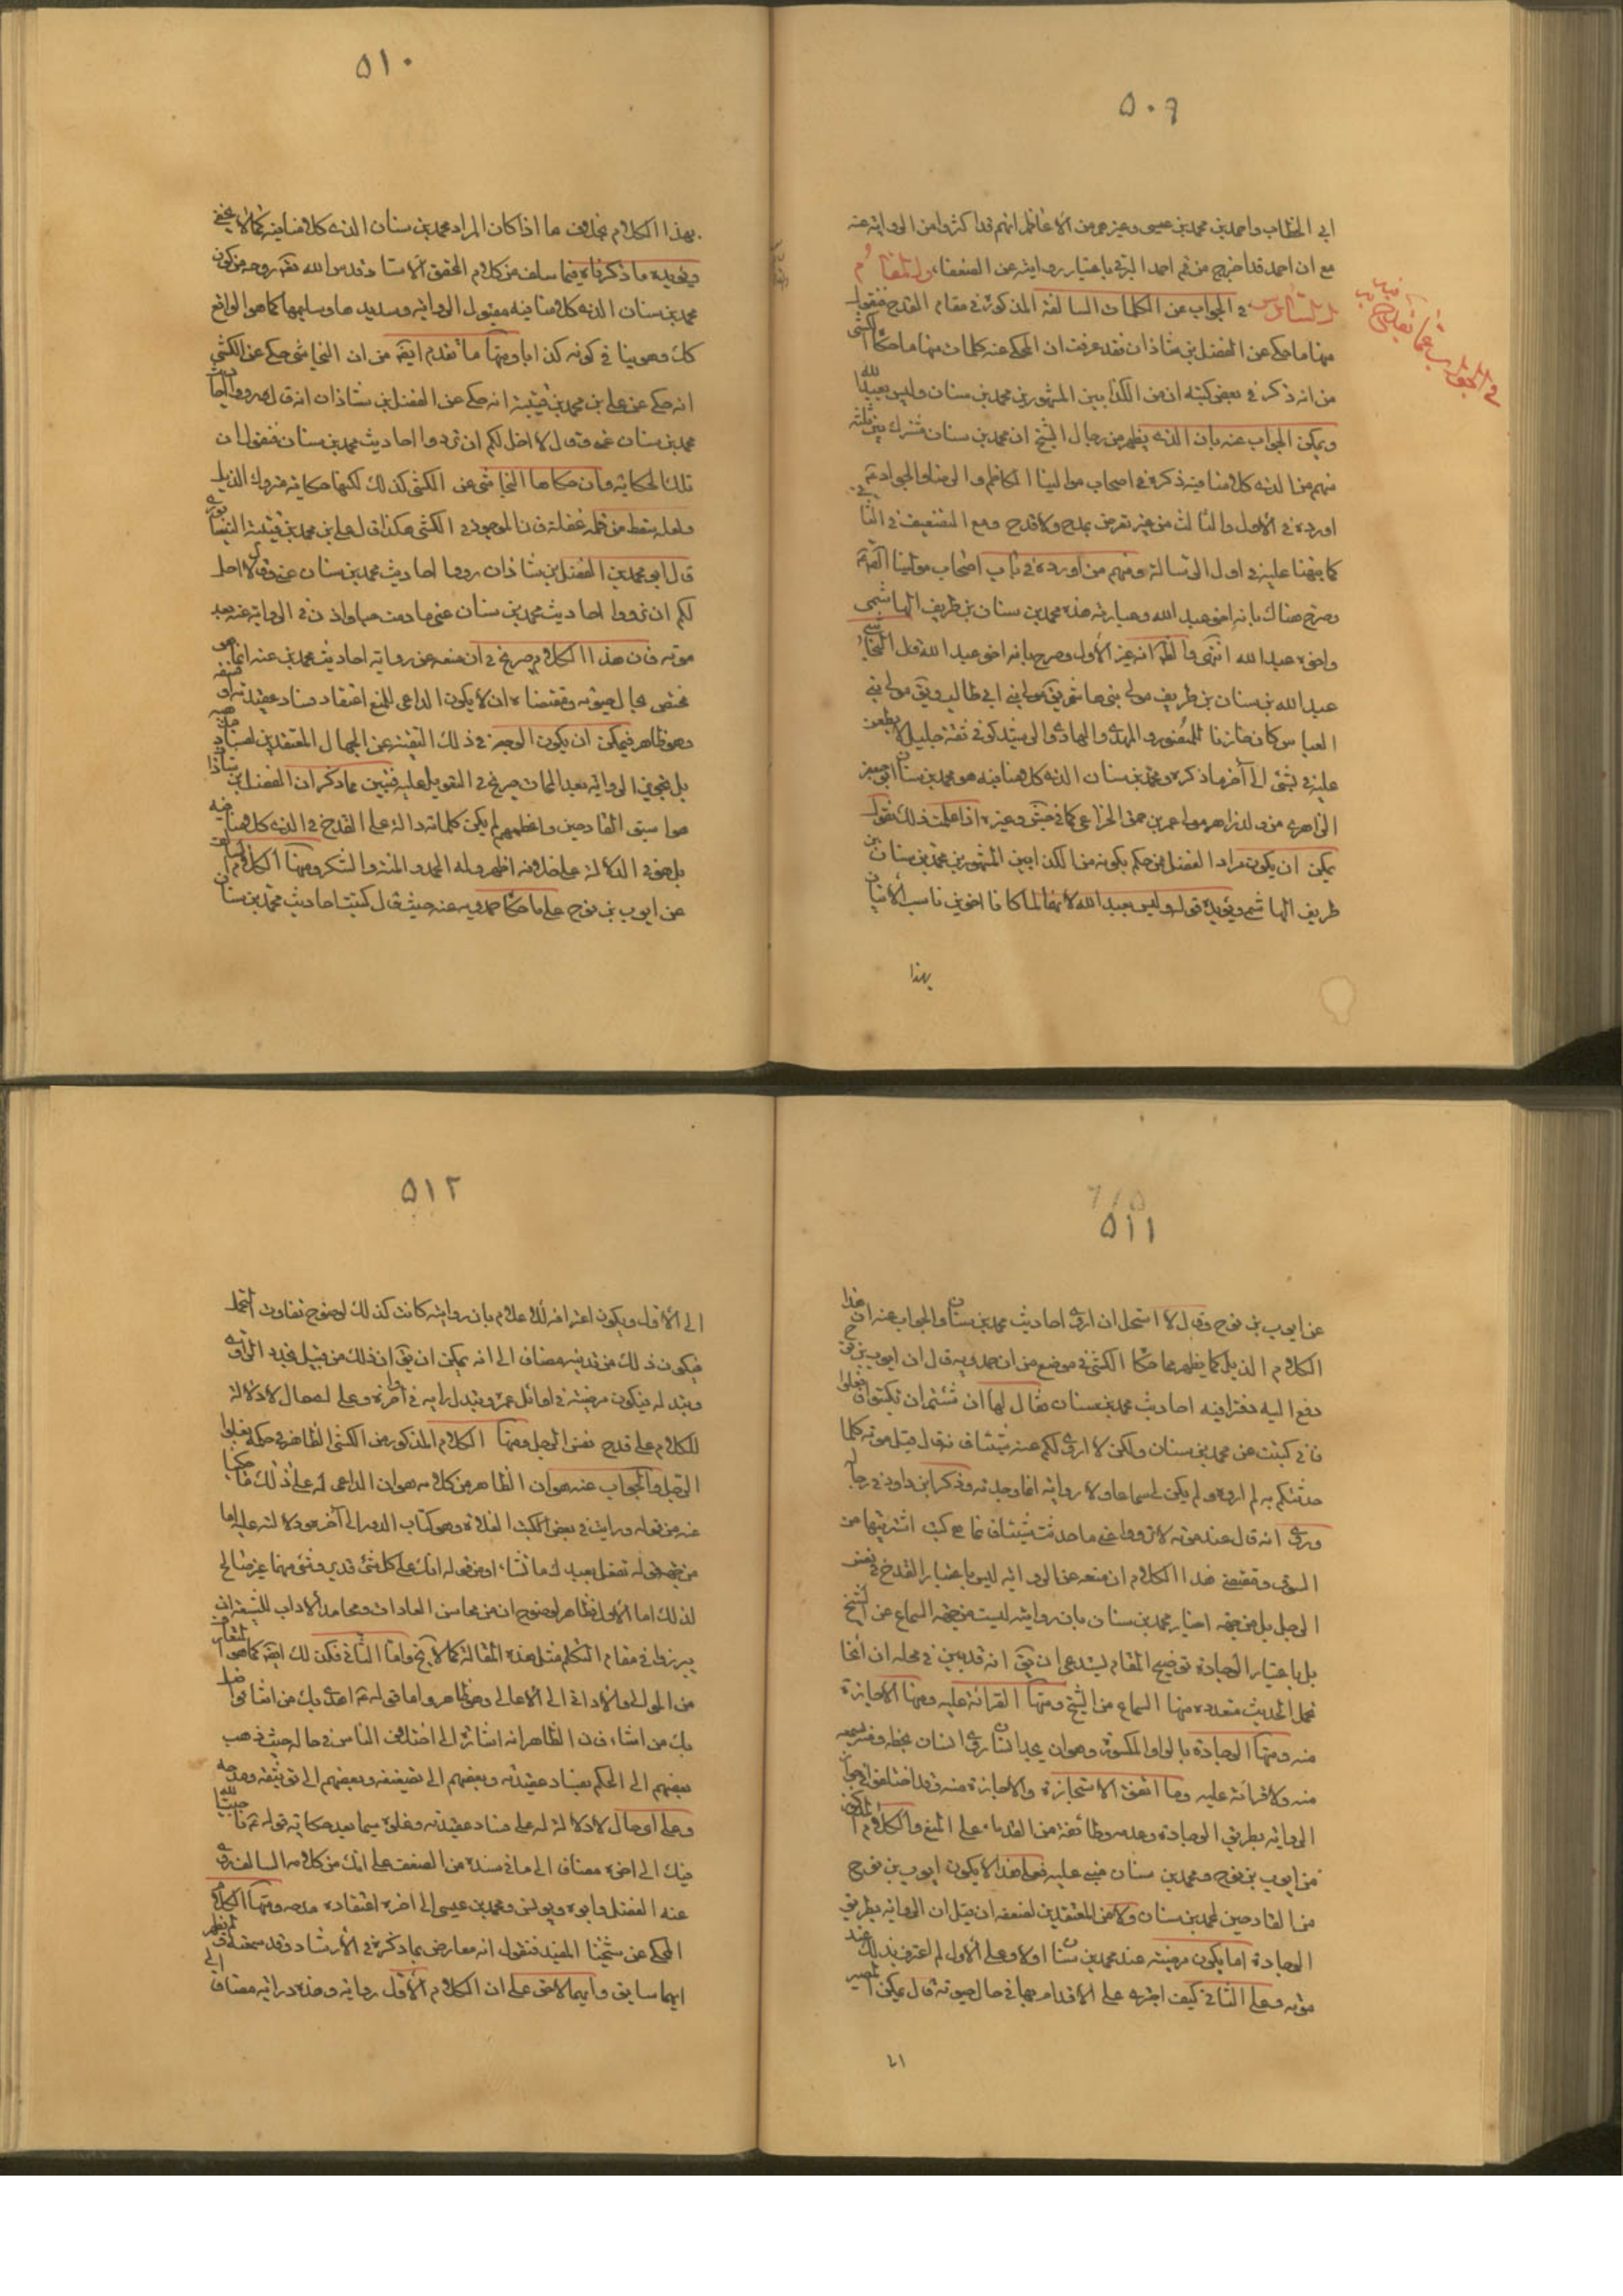 ٥٠٩
ابي الخطاب واحمد بن محمد بن عيسى وغيرهم من الأعاظم انهم قد اكثروا من الرواية عنه
مع ان احمد قد اخرج من قم احمد البرقي باعتبار روايته عن الضعفاء
في الجواب عن الكلمات السالفة المذكورة في مقام القدح فنقول
منها ما حكي عن الفضل بن شاذان فقد عرفت ان المحكي عنه كلمات منها ما حكاه الكشي
من انه ذكر في بعض كتبه ان من الكذابين المشهورين محمد بن سنان وليس بعبد الله
ويمكن الجواب عنه بان الذي يظهر من رجال الشيخ ان محمد بن سنان مشترك بين ثلثة
منهم من الذي كلامنا فيه ذكره في اصحاب موالينا الكاظم والرضا والجواد ع
اورده في الأول والثالث من غير تعرض بمدح ولا قدح ومع التضعيف في الثاني
كما نبهنا عليه في اول الرسالة ومنهم من اورده في باب اصحاب مولينا
وصرح هناك بانه اخو عبد الله وعبارته هذه محمد بن سنان بن طريف الهاشمي
واخوه عبد الله انتهى والظ انه غير الأول وصرح بانه اخو عبد الله قال النجاشي
عبد الله بن سنان بن طريف مولى بني هاشم يق مولى بني ابي طالب ويق مولى بني
العباس كان خازنا للمنصور والمهدي والهادي والرشيد كوفي ثقة جليل لا يطعن
عليه في شئ الى آخر ما ذكره ومحمد بن سنان الذي كلامنا فيه هو محمد بن سنان ابو جعفر
الزاهري من ولد زاهر مولى عمرو بن حمق الخزاعي كما في جش وغيره اذا علمت ذلك نقول
يمكن ان يكون مراد الفضل ممن حكم بكونه من الكذابين المشهورين محمد بن سنان بن
طريف الهاشمي ويؤيده قوله وليس بعبد الله لأنهما لما كانا اخوين ناسب الأتيان
بهذا
٥١٠
بهذا الكلام بخلاف ما اذا كان المراد محمد بن سنان الذي كلامنا فيه كما لا يخفى
ويؤيده ما ذكرناه فيما سلف من كلام المحقق الأستاد قدس الله تعه روحه من كون
محمد بن سنان الذي كلامنا فيه مقبول الرواية وسديدها وسليمها كما هو الواقع
كك وصوبنا في كونه كذابا ومنها ما تقدم ايضه من ان النجاشي حكى عن الكشي
انه حكى عن علي بن محمد بن قتيبة انه حكى عن الفضل بن شاذان انه قال ردوا احاديث
محمد بن سنان عني وقال لا احل لكم ان تردوا احاديث محمد بن سنان فنقول ان
تلك الحكاية وان حكاها النجاشي عن الكشي كذلك لكنها حكاية متروك الذيل
ولعله سقط من قلمه غفلة فان الموجود في الكشي هكذا قال علي بن محمد بن قتيبة النيسابوري
قال ابو محمد بن الفضل بن شاذان ردوا احاديث محمد بن سنان عني وقال لا احل
لكم ان تردوا احاديث محمد بن سنان عني ما دمت حيا واذن في الرواية عنه بعد
موته فان هذا الكلام صريح في ان منعه عن رواية احاديث محمد بن عنه انما هو
مختص بحال حيوته ومقتضاه ان لا يكون الداعي للمنع اعتقاد فساد عقيدته او
وهو ظاهر فيمكن ان يكون الوجه في ذلك التقية عن الجهال المعتقدين لفساد
بل تجويز الرواية بعد الممات صريح في التعويل عليه فتبين مما ذكر ان الفضل بن شاذان
هو اسبق القادحين واعظمهم لم يكن كلماته دالة على القدح في الذي كلامنا فيه
بل هو في الدلالة على خلافه اظهر وله الحمد والمنة والشكر ومنها الكلام
عن ايوب بن نوح على ما حكاه حمدويه عنه حيث قال كتبت احاديث محمد بن سنان
٥١١
عن ايوب بن نوح وقال لا استحل ان اروي احاديث محمد بن سنان والجواب عنه ان هذا
الكلام الذيل كما يظهر مما حكاه الكشي في موضع من ان حمدويه قال ان ايوب بن نوح
دفع اليه دفترا فيه احاديث محمد بن سنان فقال لها ان شئتم ان تكتبوا فافعلوا
فاني كتبت عن محمد بن سنان ولكن لا اروي لكم عنه شيئا فانه قال قبل موته كلما
حدثتكم به لم اروه ولم يكن لي سماعا ولا رواية انما وجدته وذكر ابن داود في رجاله
وروى انه قال عند موته لا ترووا عني ما حدثت شيئا فانما هي كتب اشتريتها من
السوق ومقتضى هذا الكلام ان منعه عن الرواية ليس باعتبار القدح في نفس
الرجل بل من جهة اخبار محمد بن سنان بان روايته ليست من جهة السماع عن الشيخ
بل باعتبار الوجادة توضيح المقام يستدعي ان يق انه قد بين في محله ان انحاء
تحمل الحديث متعددة منها السماع من الشيخ ومنها القراءة عليه ومنها الأجازة
منه ومنها الوجادة بالواو المكسورة وهو ان يجد انسان مروي انسان بخطه من غير سمعه
منه ولا قراءة عليه وما اتفق الاستجازة والاجازة منه وقد اختلفوا في جواز
الرواية بطريق الوجادة وعدمه وطائفة من القدماء على المنع والكلام المذكور
من ايوب بن نوح ومحمد بن سنان مبني عليه فعلى هذا لا يكون ايوب بن نوح
من القادحين لمحمد بن سنان ولا من المعتقدين لضعفه ان قيل ان الرواية بطريق
الوجادة اما يكون مرضية عند محمد بن سنان اولا وعلى الأول لم اعترف بذلك عند
موته وعلى الثاني كيف اجترى على الاقدام بها في حال حيوته قال يمكن المصير
الى
٥١٢
الى الأول ويكون اعترافه لك علام بان روايته كانت كذلك لوضوح تفاوت التحمل
فيكون ذلك من تدينه مضاف الى انه يمكن ان يق ان ذلك من قبيل تجدد الراي
وتبدله فيكون مرضية في اوائل عمره وتبدل رايه في آخره وعلى احوال لا دلالة
للكلام على قدح نفس الرجل ومنها الكلام المذكور من الكشي الظاهر في حكمه بغلو
الرجل والجواب عنه هو ان الظاهر من كلامه هو ان الداعي له على ذلك ما حكيا
عنه من قوله ورايت في بعض الكتب الغلاة وهو كتاب الدور الى آخره ولا دلالة عليه اما
من جهة قوله تفعل بعبدك ما تشاء اومن قوله انك على كل شئ قدير وشئ منهما غير صالح
لذلك اما الأول فظاهر لوضوح ان من محاسن العادات ومحامد الأداب للشيعة ان
يبرزوا في مقام التكلم مثل هذه المقالة كما لا يخفى واما الثاني فكذلك ايضه كما هو
من الموالي والأداني الى الأعالي وهو ظاهر واما قوله ع اهدي بك من اشاء واضل
بك من اشاء فان الظاهر انه اشارة الى اختلاف الناس في حاله حيث ذهب
بعضهم الى الحكم بفساد عقيدته وبعضهم الى تضعيفه وبعضهم الى توثيقه ومدحه
وعلى اي حال لا دلالة له على فساد عقيدته وغلوه سيما بعد حكاية قوله ع
فيك الى اخره مضاف الى ما في سنده من الضعف على انك من كلامه السالف روى
عنه الفضل وابوه ويونس ومحمد بن عيسى الى اخره اعتقاده مدحه ومنها الكلام
المحكي عن شيخنا المفيد فنقول انه معارض بما ذكره في الأرشاد وقد سمعته
ايهما سابق وايهما لاحق على ان الكلام الأول رواية وهذه دراية مضاف الى